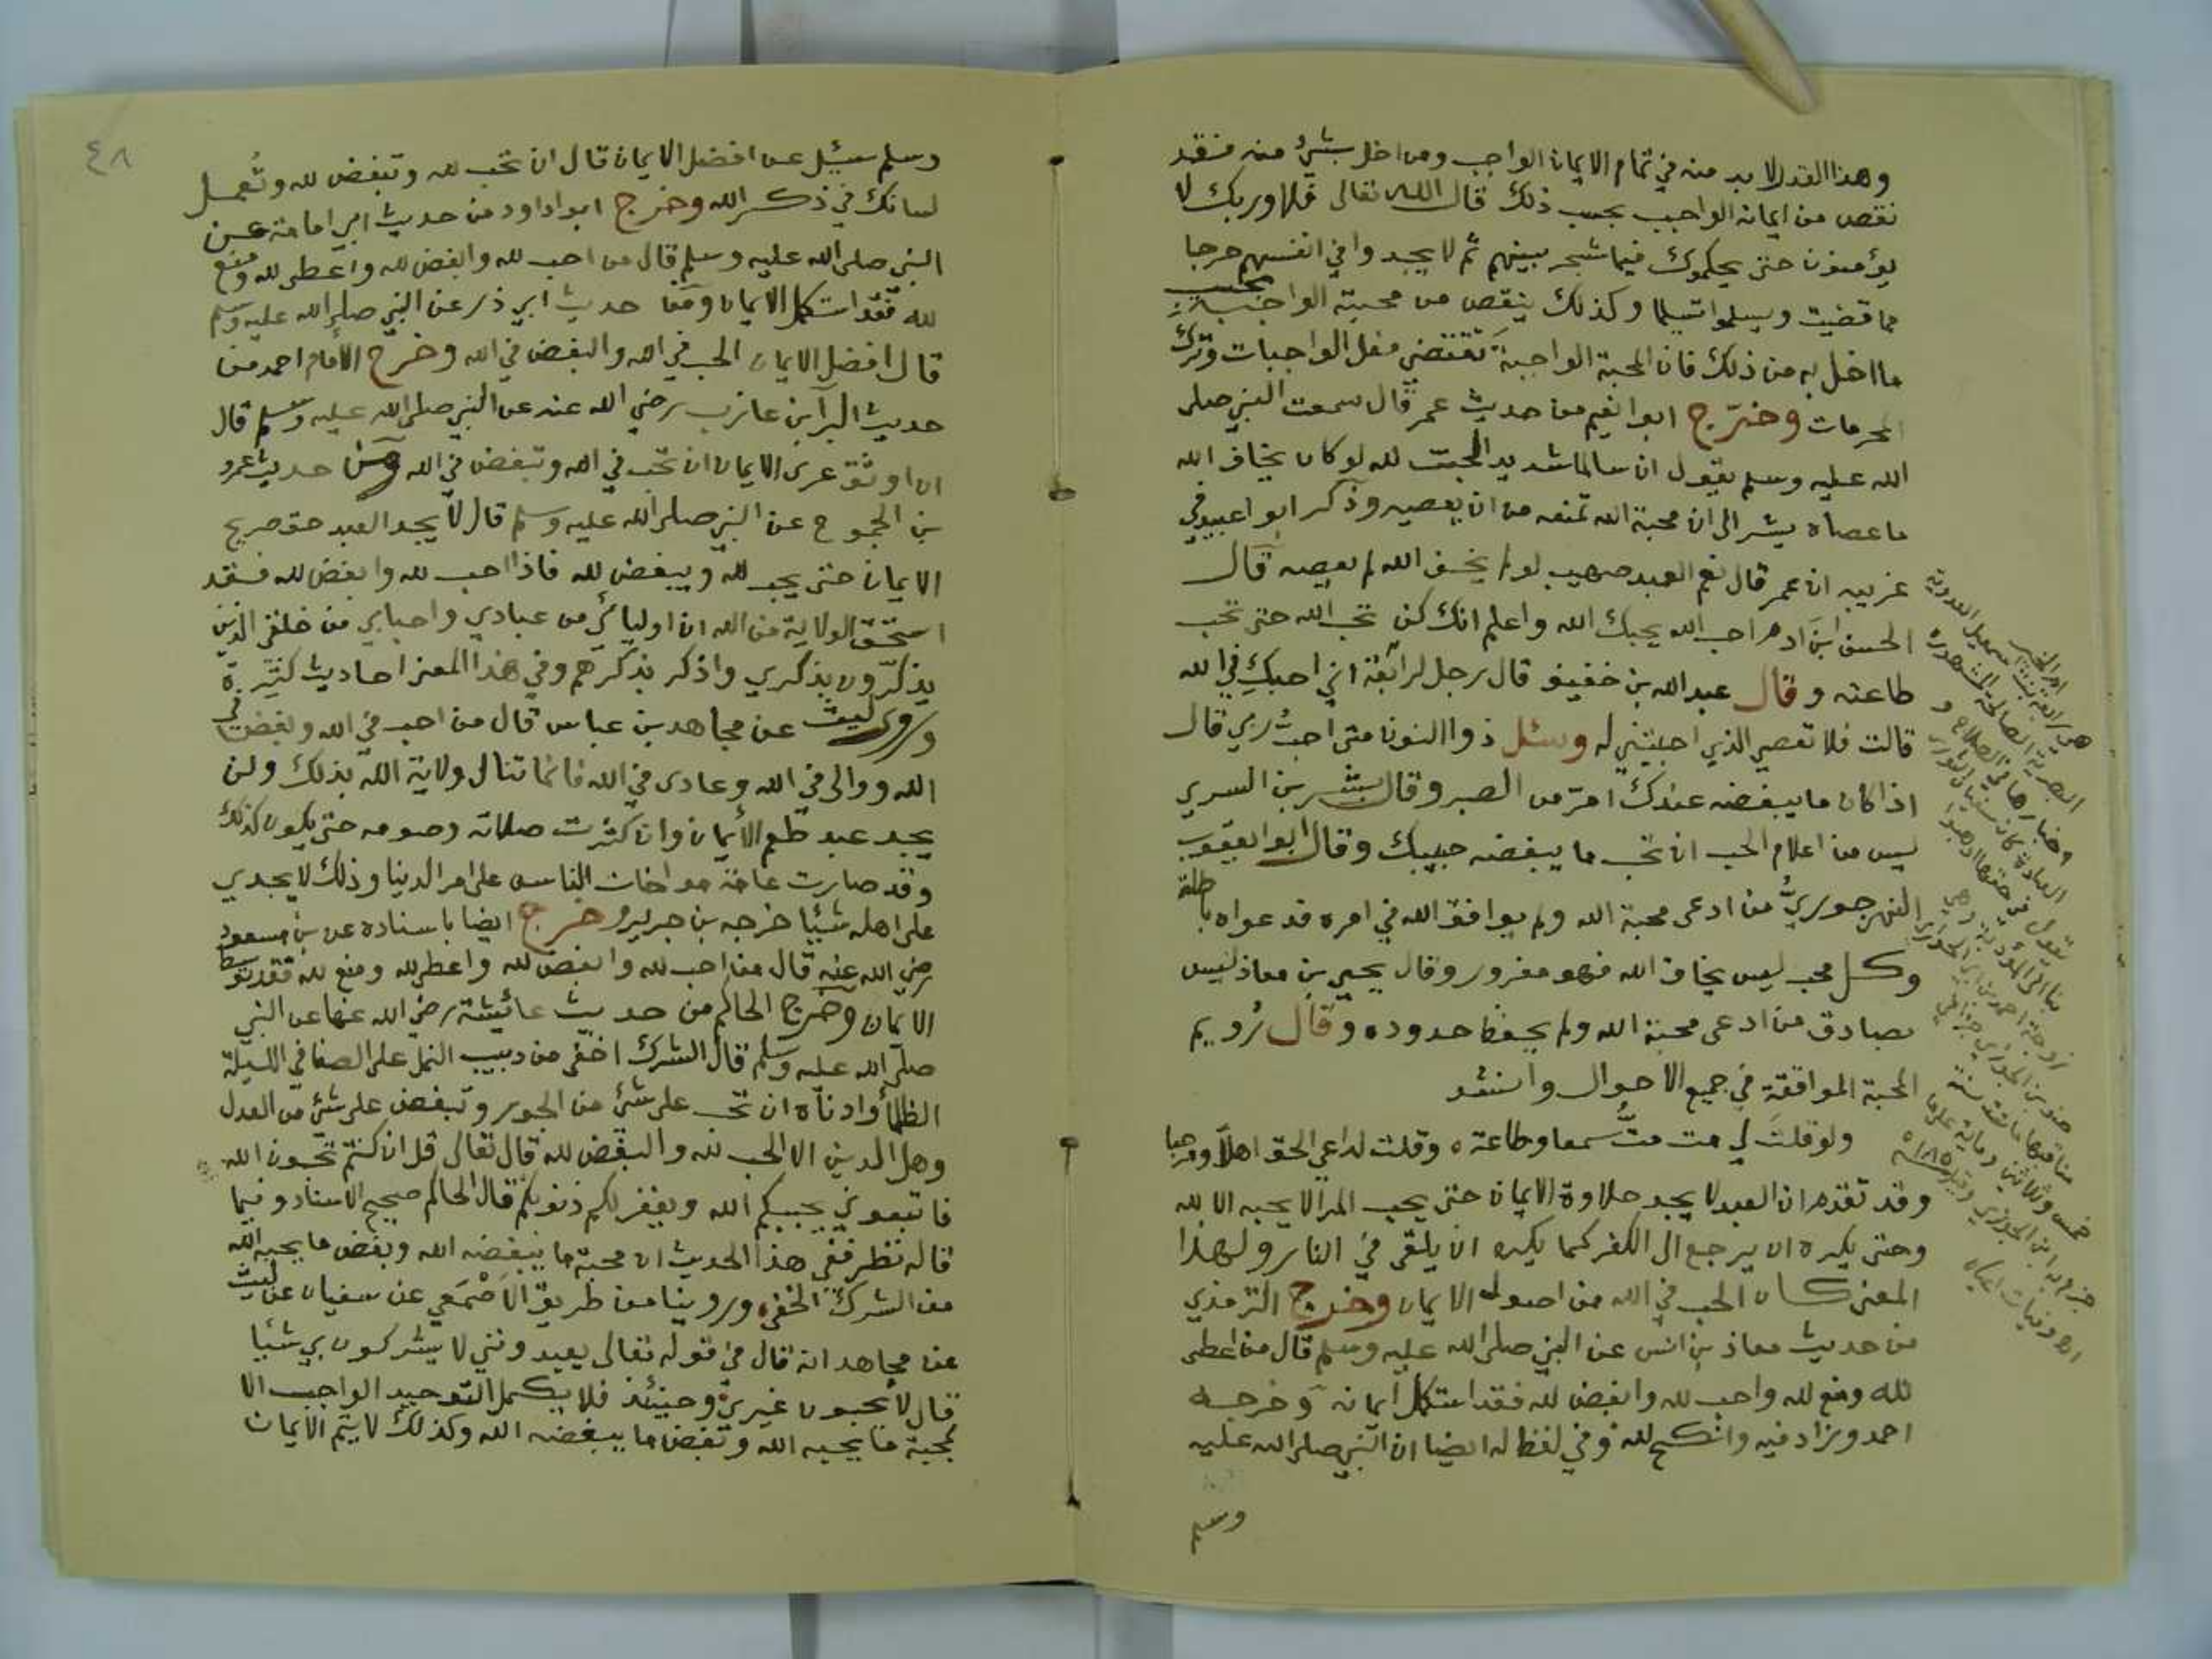 وهذا القدر لا بد منه في تمام الايمان الواجب ومن اخل بشيء منه فقد
نقص من ايمانه الواجب بحسب ذلك قال الله تعالى فلا وربك لا
يؤمنون حتى يحكموك فيما شجر بينهم ثم لا يجدوا في انفسهم حرجا
مما قضيت ويسلموا تسليما وكذلك ينقص من محبته الواجبة بحسب
ما اخل به من ذلك فان المحبة الواجبة تقتضي فعل الواجبات وترك
المحرمات وخرّج ابو انعيم من حديث عمر قال سمعت النبي صلى
الله عليه وسلم يقول ان سالما شديد المحبت لله لو كان يخاف الله
ما عصاه يشير الى ان محبة الله تمنعه من ان يعصيه وذكر ابو اعبيد في
غريبه ان عمر قال نعم العبد صهيب لو لم يخف الله لم يعصه قال
الحسن ابن ادم احب الله يحبك الله واعلم انك لن تحب الله حتى تحب
طاعته وقال عبد الله بن خفيف قال رجل لرابعة اني احبك في الله
قالت فلا تعصي الذي احببتني له وسئل ذوا النون متى احب ربي قال
اذا كان ما يبغضه عندك امرّ من الصبر وقال بشر بن السري
ليس من اعلام الحب ان تحب ما يبغضه حبيبك وقال ابو ايعقوب
النهرجوريُّ من ادعى محبة الله ولم يوافق الله في امره فدعواه باطلة
وكل محب ليس يخاف الله فهو مغرور وقال يحيى بن معاذ ليس
بصادق من ادعى محبة الله ولم يحفظ حدوده وقال رُويم
المحبة الموافقة في جميع الاحوال وانشد
ولو قلتَ لي مت متُّ سمعا وطاعة ه وقلت لداعي الحق اهلا ومرحبا
وقد تقدم ان العبد لا يجد حلاوة الايمان حتى يحب المرا لا يحبه الا لله
وحتى يكره ان يرجع الى الكفر كما يكره ان يلقى في النار ولهذا
المعنى كان الحب في الله من اصول الايمان وخرج الترمذي
من حديث معاذ بن انس عن النبي صلى الله عليه وسلم قال من اعطى
لله ومنع لله واحب لله وابغض لله فقد استكمل ايمانه وخرجه
احمد وزاد فيه وانكح لله وفي لفظ له ايضا ان النبي صلى الله عليه
وسلم
هي رابعة بنت اسمعيل العدوية
البصرية الصالحة المشهورة
٤٨
وسلم سئيل عن افضل الايمان قال ان تحب لله وتبغض لله وتُعمل
لسانك في ذكر الله وخرج ابو اداود من حديث ابي امامة عن
النبي صلى الله عليه وسلم قال من احب لله وابغض لله واعطى لله ومنع
لله فقد استكمل الايمان ومن حديث ابي ذر عن النبي صلى الله عليه وسلم
قال افضل الايمان الحب في الله والبغض في الله وخرج الأمام احمد من
حديث البرآ بن عازب رضي الله عنه عن النبي صلى الله عليه وسلم قال
ان اوثق عرى الايمان ان تحب في الله وتبغض في الله ومن حديث عمرو
بن الجموح عن النبي صلى الله عليه وسلم قال لا يجد العبد حق صريح
الايمان حتى يحب لله ويبغض لله فاذا احب لله وابغض لله فقد
استحق الولاية من الله ان اوليائي من عبادي واحبابي من خلقي الذين
يذكرون بذكري واذكر بذكرهم وفي هذا المعنى احاديث كثيرة
وروى ليث عن مجاهد بن عباس قال من احب في الله وابغض في
الله ووالى في الله وعادى في الله فانما تنال ولاية الله بذلك ولن
يجد عبد طعم الأيمان وان كثرت صلاته وصومه حتى يكون كذلك
وقد صارت عامة مواخات الناس على امر الدنيا وذلك لا يجدي
على اهله شئيا خرجه بن جرير وخرج ايضا باسناده عن بن مسعود
رضي الله عنه قال من احب لله وابغض لله واعطى لله ومنع لله فقد توسط
الايمان وخرج الحاكم من حديث عائيشة رضي الله عنها عن النبي
صلى الله عليه وسلم قال الشرك اخفى من دبيب النمل على الصفا في الليلة
الظلمأ وادناه ان تحب على شيء من الجور وتبغض على شيء من العدل
وهل الدين الا الحب لله والبغض لله قال تعالى قل ان كنتم تحبون الله
فاتبعوني يحببكم الله ويغفر لكم ذنوبكم قال الحاكم صحيح الاسناد وفيما
قاله نظر ففي هذا الحديث ان محبة ما يبغضه الله وبغض ما يحبه الله
من الشرك الخفي وروينا من طريق الاَصْمَعي عن سفيان عن ليث
عن مجاهد انه قال في قوله تعالى يعبدونني لا يشركون بي شئيا
قال لا يحبون غيري وحينئذ فلا يكمل التوحيد الواجب الا
بمحبة ما يحبه الله وتبغض ما يبغضه الله وكذلك لا يتم الايمان